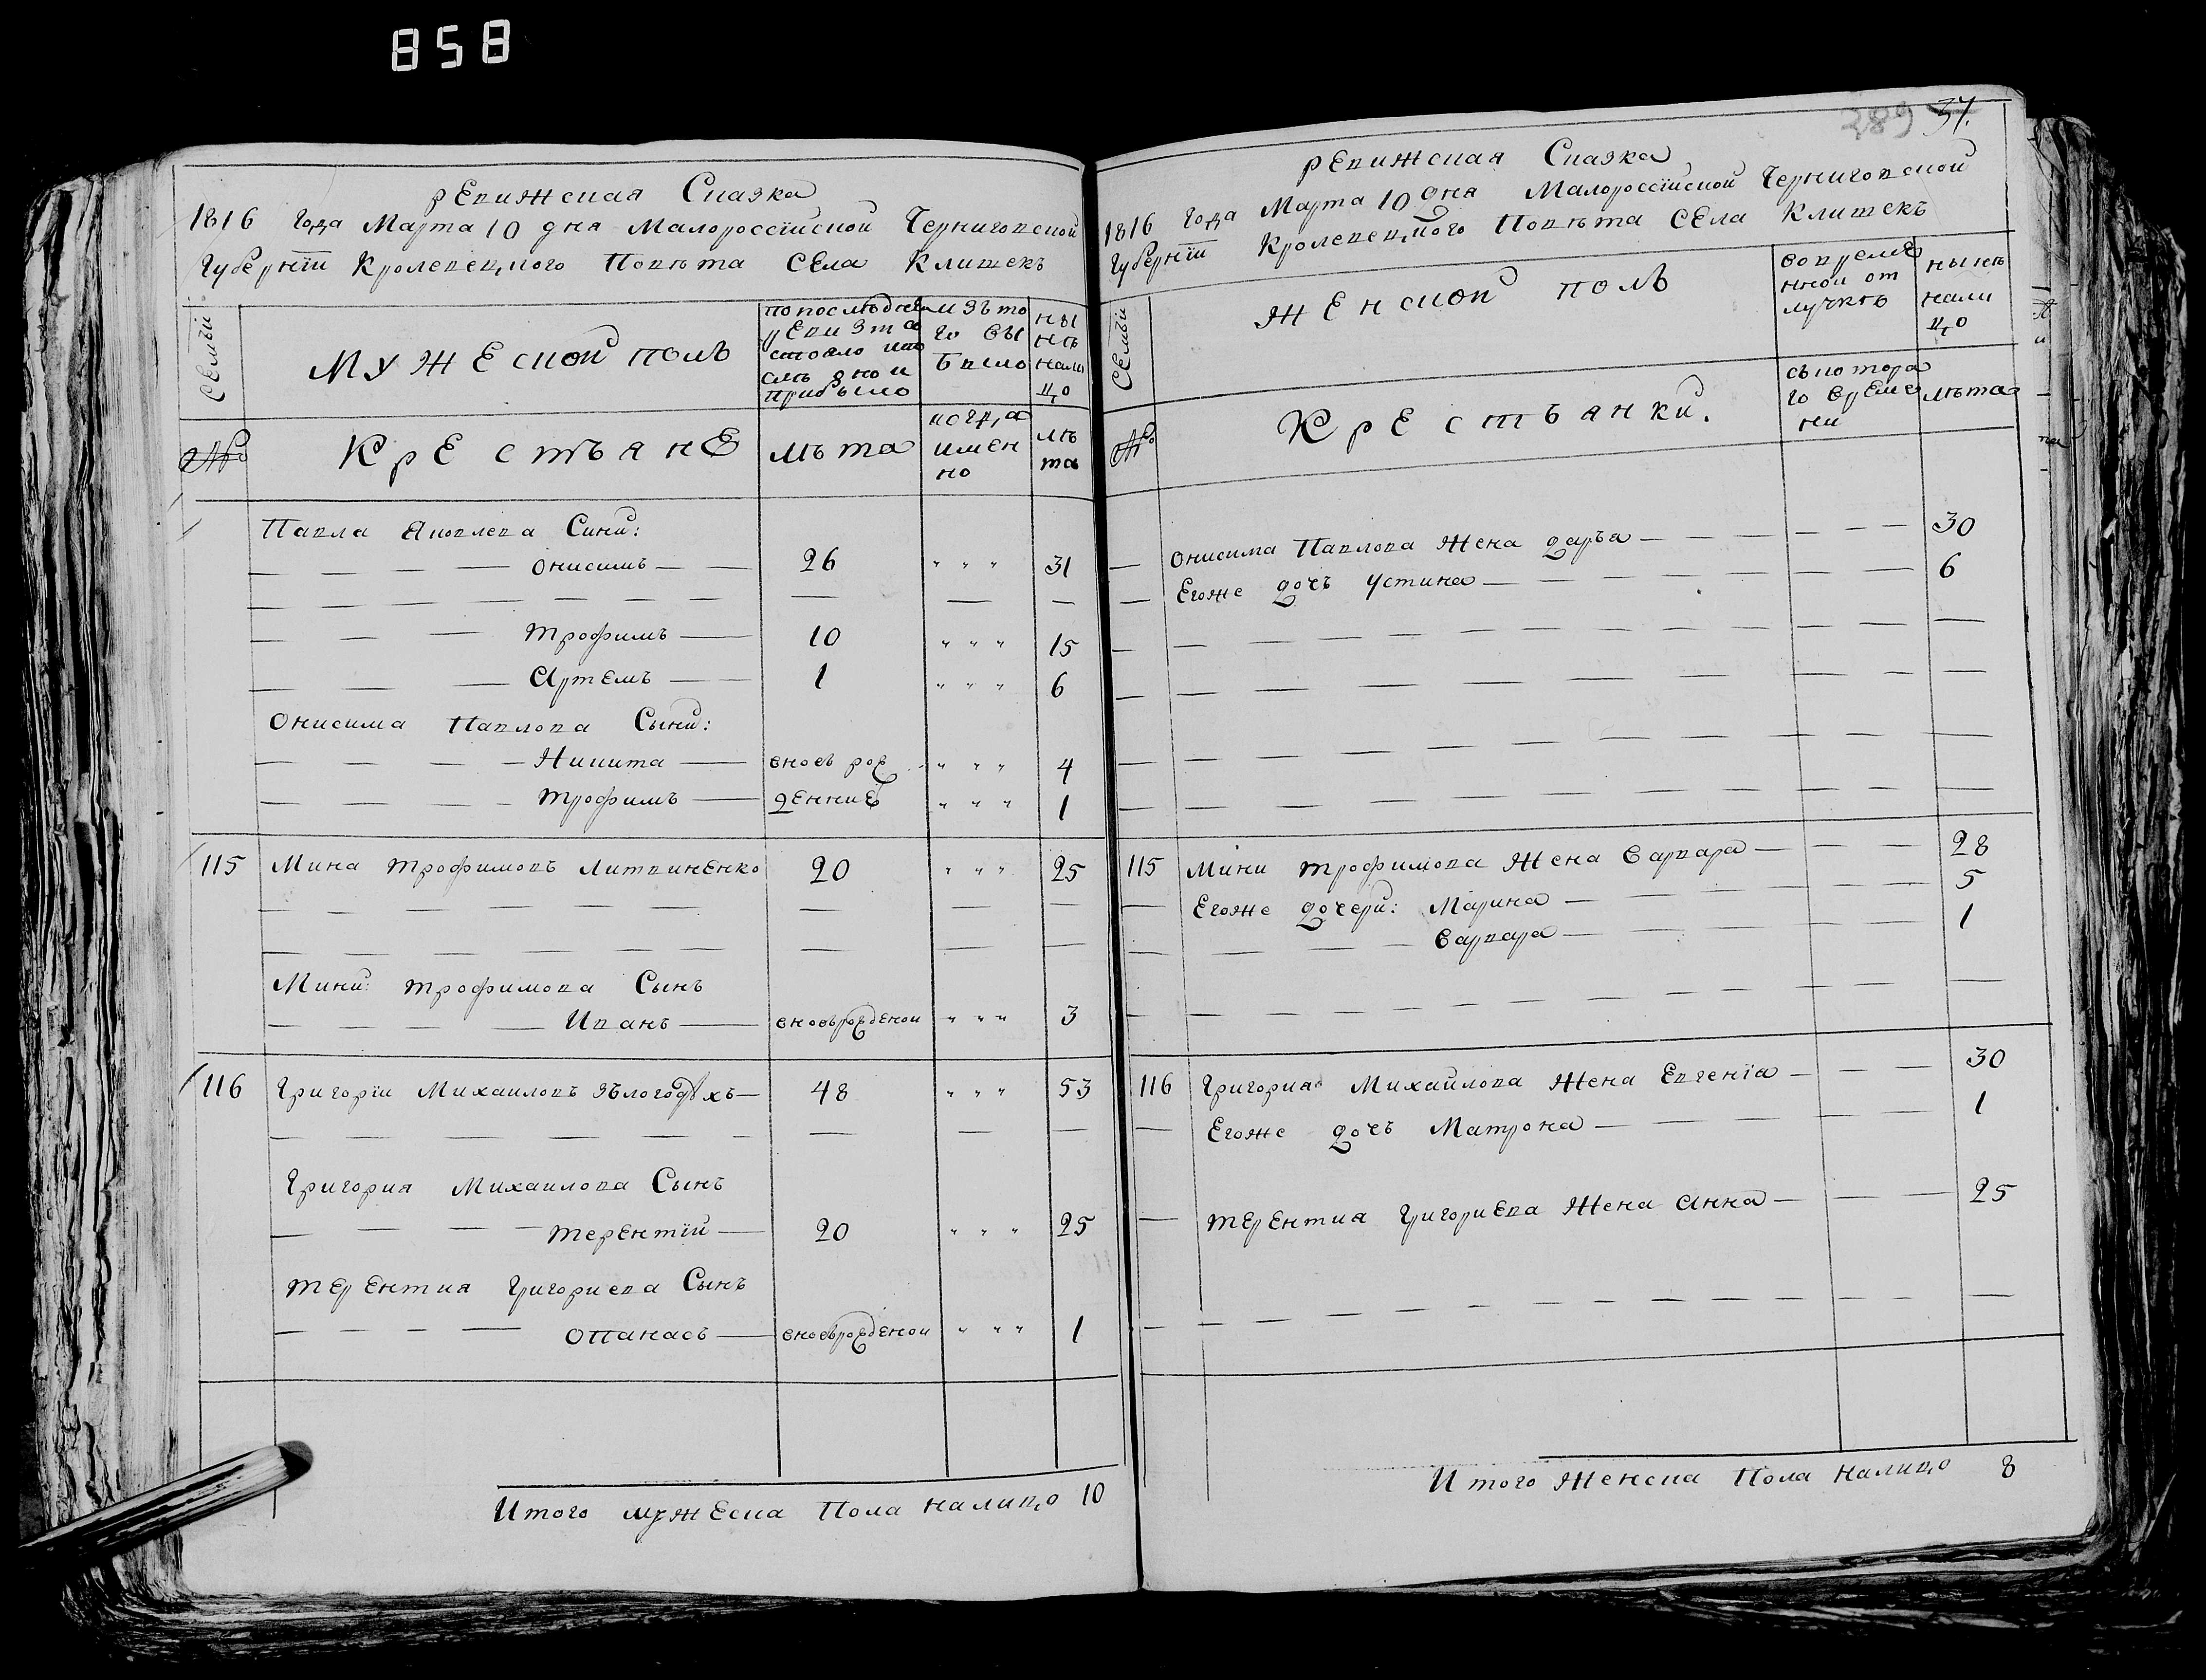 858
289 37.
Ревижская Сказка
1816 Года Марта 10 дня Малороссійской Черниговской
Губерніи Кролевецкого Повѣта Села Клишекъ
Семьи
Мужеской полъ
по последней
ревизіи со
стояло и по
слѣ оной
прибыло
изъ то
го вы
было
ны
нѣ
нали
цо
№
Крестьяне
лѣта
когда
имен
но
лѣ
та
Павла Яковлева Сини:
— — — — Онисимъ — — 26 " " " 31
— — — — — — — — — —
— — — Трофимъ — 10 " " " 15
— — — Артемъ — 1 " " " 6
Онисима Павлова Сыни:
— — — — Никита — вновь рож " " " 4
— — — — Трофимъ — денние " " " 1
115 Мина Трофимовъ Литвиненко 20 " " " 25
— — — — — — — — —
— — — — — — — — —
Мини Трофимова Сынъ
— — — — Иванъ — вновьрожденои " " " 3
116 Григоріи Михаиловъ — 48 " " " 53
— — — — — — — — —
Григория Михаилова Сынъ
— — — — Терентій — 20 " " " 25
Терентия Григориева Сынъ
— — — — Опанасъ — вновьрожденои " " " 1
Итого мужеска Пола налицо 10
Ревижская Сказка
1816 Года Марта 10 дня Малороссійской Черниговской
Губерніи Кролевецкого Повѣта Села Клишекъ
Семьи
Женской полъ
во време
нной от
лучкѣ
нынѣ
нали
цо
№
Крестьянки.
съ котора
го време
ни
лѣта
— Онисима Павлова Жена Дарья — — — — — — 30
— Егоже дочь Устина — — — — — — 6
— — — — — — — — — — —
— — — — — — — — — — —
— — — — — — — — — — —
— — — — — — — — — — —
115 Мини Трофимова Жена Варвара — — — 28
— Егоже дочери: Марина — — — — — 5
— — — — Варвара — — — — — 1
— — — — — — — — — — —
116 Григория Михайлова Жена Евгенія — — — 30
— Егоже дочь Матрона — — — — — 1
— Терентия Григориева Жена Анна — — — 25
— — — — — — — — — — —
Итого Женска Пола налицо 8